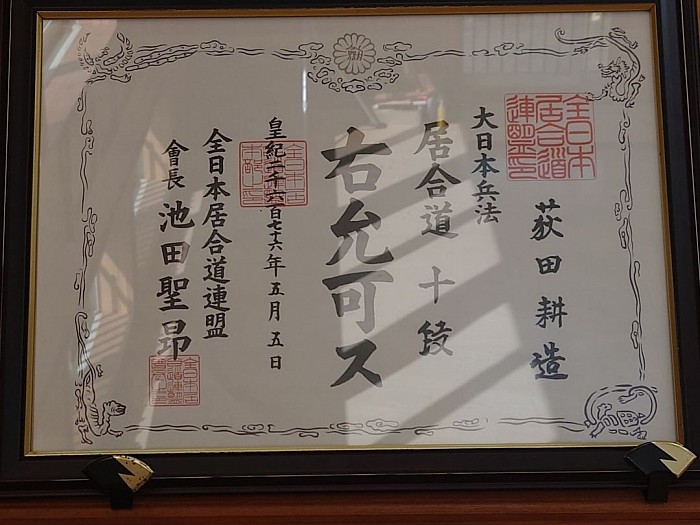 全日本
居合道
連盟印
荻田耕造
大日本兵法
居合道 十段
右允可ス
皇紀二千六百七十六年五月五日
全日本居合道連盟
會長 池田聖昂